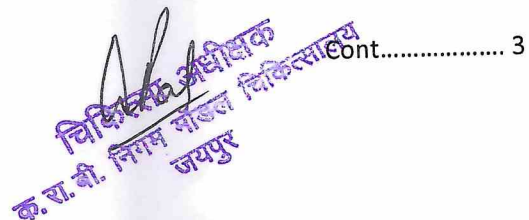 Cont.................. 3
चिकित्सा अधीक्षक
क. रा. बी. निगम मॉडल चिकित्सालय
जयपुर